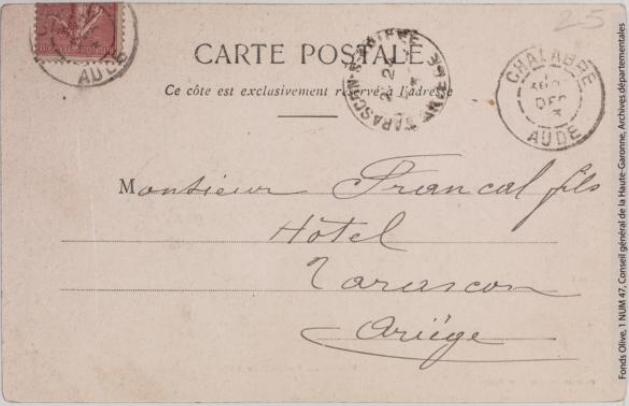 25
CARTE POSTALE
Ce côte est exclusivement réservé à l'adresse
CHALABRE
DEC
AUDE
AUDE
Monsieur Francal fils
Hôtel
Tarascon
Ariège
Fonds Olive, 1 NUM 47, Conseil général de la Haute-Garonne, Archives départementales